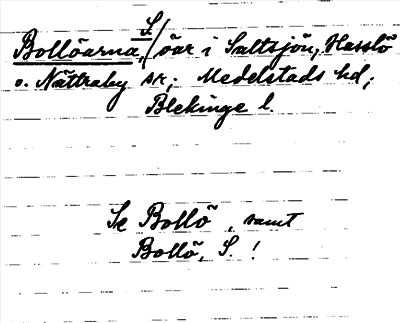 Bollöarna, S./ öar i Saltsjön, Hasslö
o. Nättraby sr; Medelstads hd;
Blekinge l.
Se Bollö, samt
Bollö, S. !